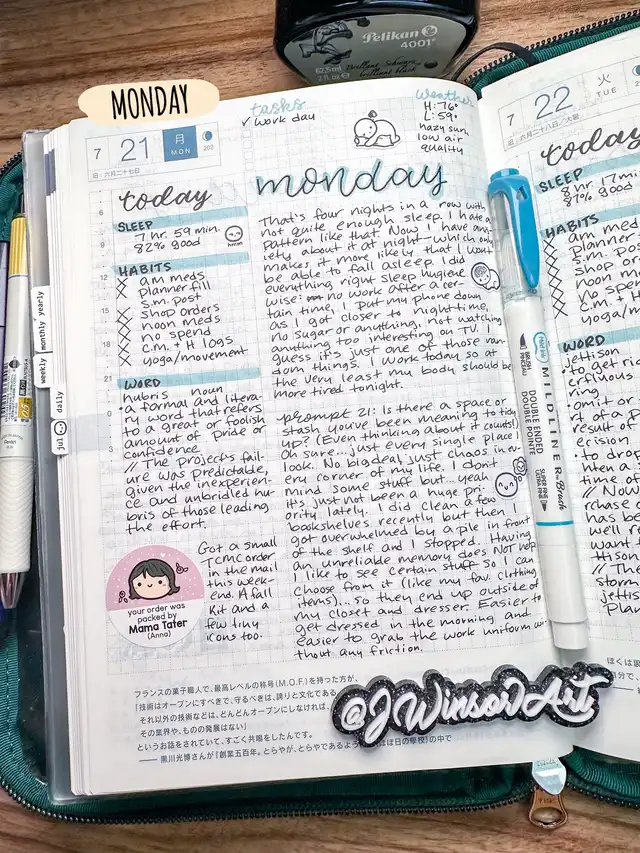 Pelikan
4001
62.5ml Brillant-Schwarz
2 fl oz brilliant black
MONDAY
7 21 月
MON
旧:六月二十七日
202
tasks
✓ work day
Weather
H: 76°
L: 59°
hazy sun,
low air
quality
today
SLEEP
7 hr. 59 min.
82% good
HABITS
X am meds
X planner fill
X s.m. post
X shop orders
X noon meds
X no spend
X c.m. + H logs
X yoga/movement
WORD
hubris noun
• a formal and litera-
ry word that refers
to a great or foolish
amount of pride or
confidence
// The project's fail-
ure was predictable,
given the inexperien-
ce and unbridled hu-
bris of those leading
the effort.
your order was
packed by
Mama Tater
(Anna)
Got a small
TCMC order
in the mail
this week-
end. A fall
kit and a
few tiny
icons too.
monday
That's four nights in a row with
not quite enough sleep. I hate a
pattern like that. Now I have anx-
iety about it at night—which only
makes it more likely that I won't
be able to fall asleep. I did
everything right sleep hygiene
wise: no work after a cer-
tain time, I put my phone down
as I got closer to nighttime,
no sugar or anything, not watching
anything too interesting on TV. I
guess it's just one of those ran-
dom things. I work today so at
the very least my body should be
more tired tonight.
prompt 21: Is there a space or
stash you've been meaning to tidy
up? (Even thinking about it counts!)
Oh sure...just every single place I
look. No big deal, just chaos in ev-
ery corner of my life. I don't
mind some stuff but...yeah
it's just not been a huge pri-
ority lately. I did clean a few
bookshelves recently but then I
got overwhelmed by a pile in front
of the shelf and I stopped. Having
an unreliable memory does NOT help.
I like to see certain stuff so I can
choose from it (like my fav. clothing
items)...so they end up outside of
my closet and dresser. Easier to
get dressed in the morning and
easier to grab the work uniform wi-
thout any friction.
フランスの菓子職人で、最高レベルの称号(M.O.F.)を持った方が、
「技術はオープンにすべきで、守るべきは、誇りと文化である
それ以外の技術などは、どんどんオープンにしなければ、
その業界や、ものの発展はない」
というお話をされていて、すごく共鳴をしたんです。
——黒川光博さんが『創業五百年。とらやが、とらやであるよう
ほぼ日の學校』の中で
@JWinsorArt
weekly monthly yearly
jul daily
MILDLINER Brush
BRUSH
PINCEAU
DOUBLE ENDED
DOUBLE POINTE
SUPER FINE
ULTRA FINE
7 22 火
TUE
旧:六月二十八日/大暑
today
SLEEP
8 hr 17 min
87% good
HABITS
am meds
planner
s.m. post
shop or
noon me
no spen
c.m. +
yoga/m
WORD
jettison